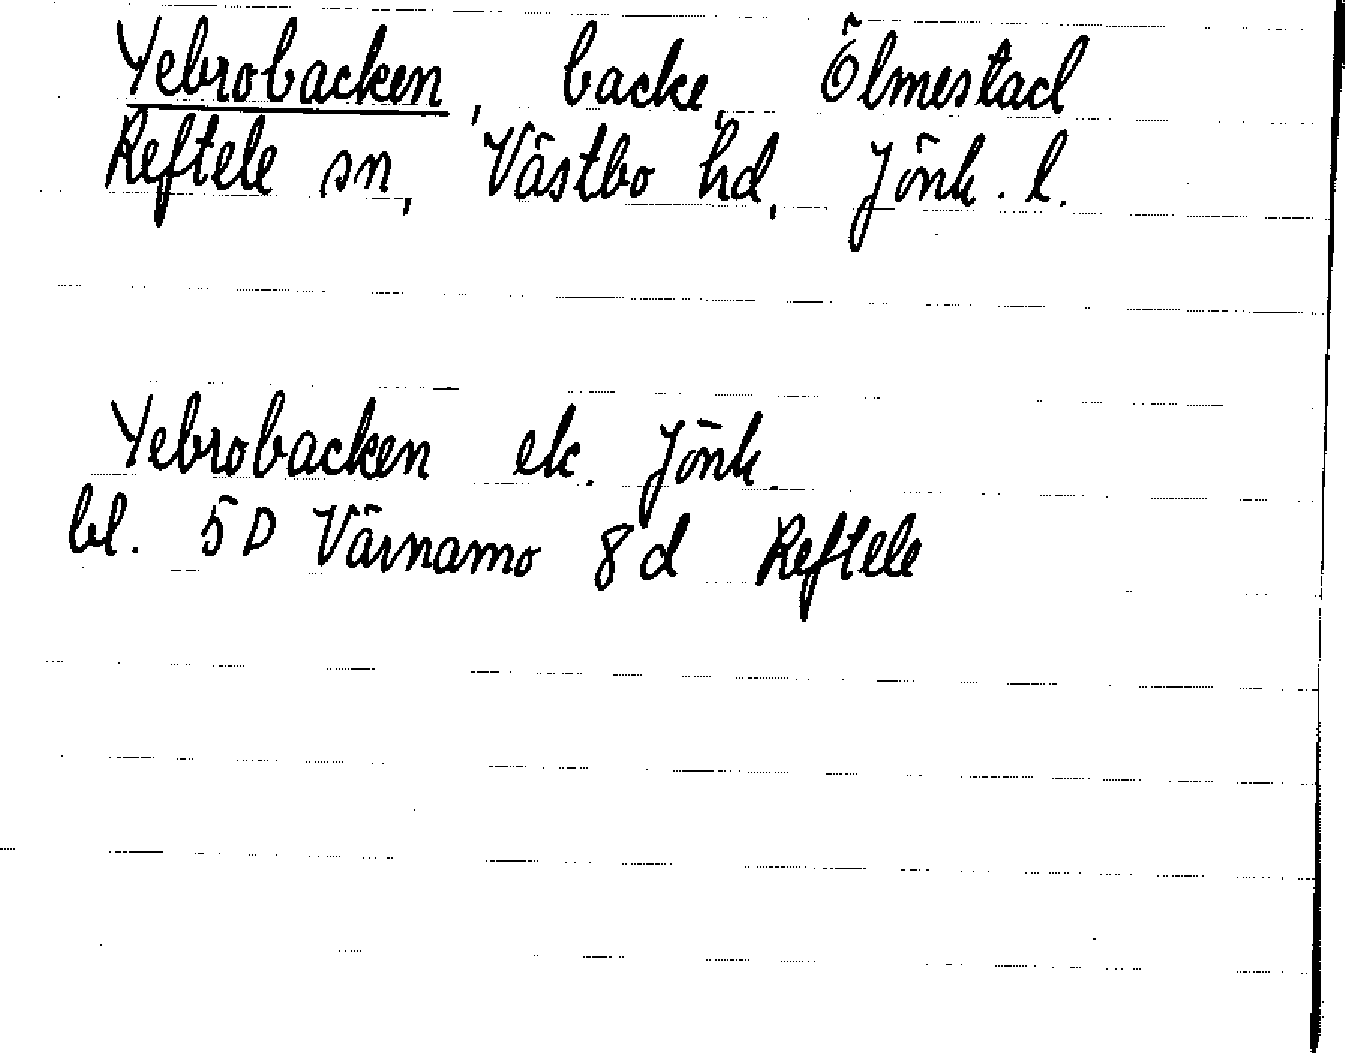 Yebrobacken, backe, Ölmestad
Reftele sn, Västbo hd, Jönk. l.
Yebrobacken ek. Jönk.
bl. 5D Värnamo 8d Reftele